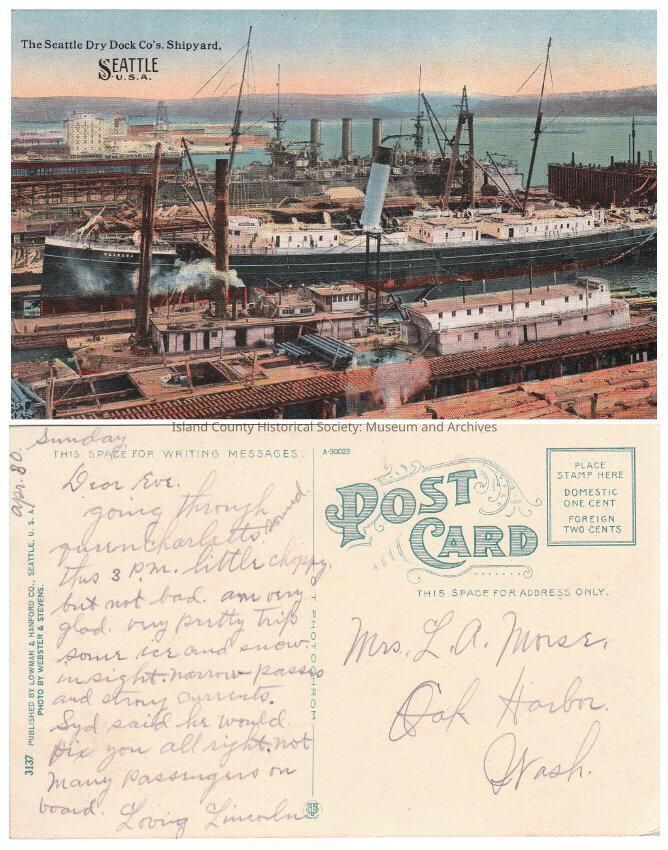 The Seattle Dry Dock Co's. Shipyard,
SEATTLE
U.S.A.
Island County Historical Society: Museum and Archives
Sunday
Apr. 30.
THIS SPACE FOR WRITING MESSAGES.
Dear Eve.
going through
queen charlotts sound
this 3 P.M. little choppy.
but not bad. am very
glad. very pretty trip
some ice and snow.
in sight. narrow passes
and strong currents.
Syd said he would
fix you all right. not
many passengers on
board. Loving Lincoln
3137 PUBLISHED BY LOWMAN & HANFORD CO., SEATTLE, U. S. A.
PHOTO BY WEBSTER & STEVENS.
PHOTOCHROM
A-30023
POST
CARD
PLACE
STAMP HERE
DOMESTIC
ONE CENT
FOREIGN
TWO CENTS
THIS SPACE FOR ADDRESS ONLY.
Mrs. L. A. Morse.
Oak Harbor.
Wash.